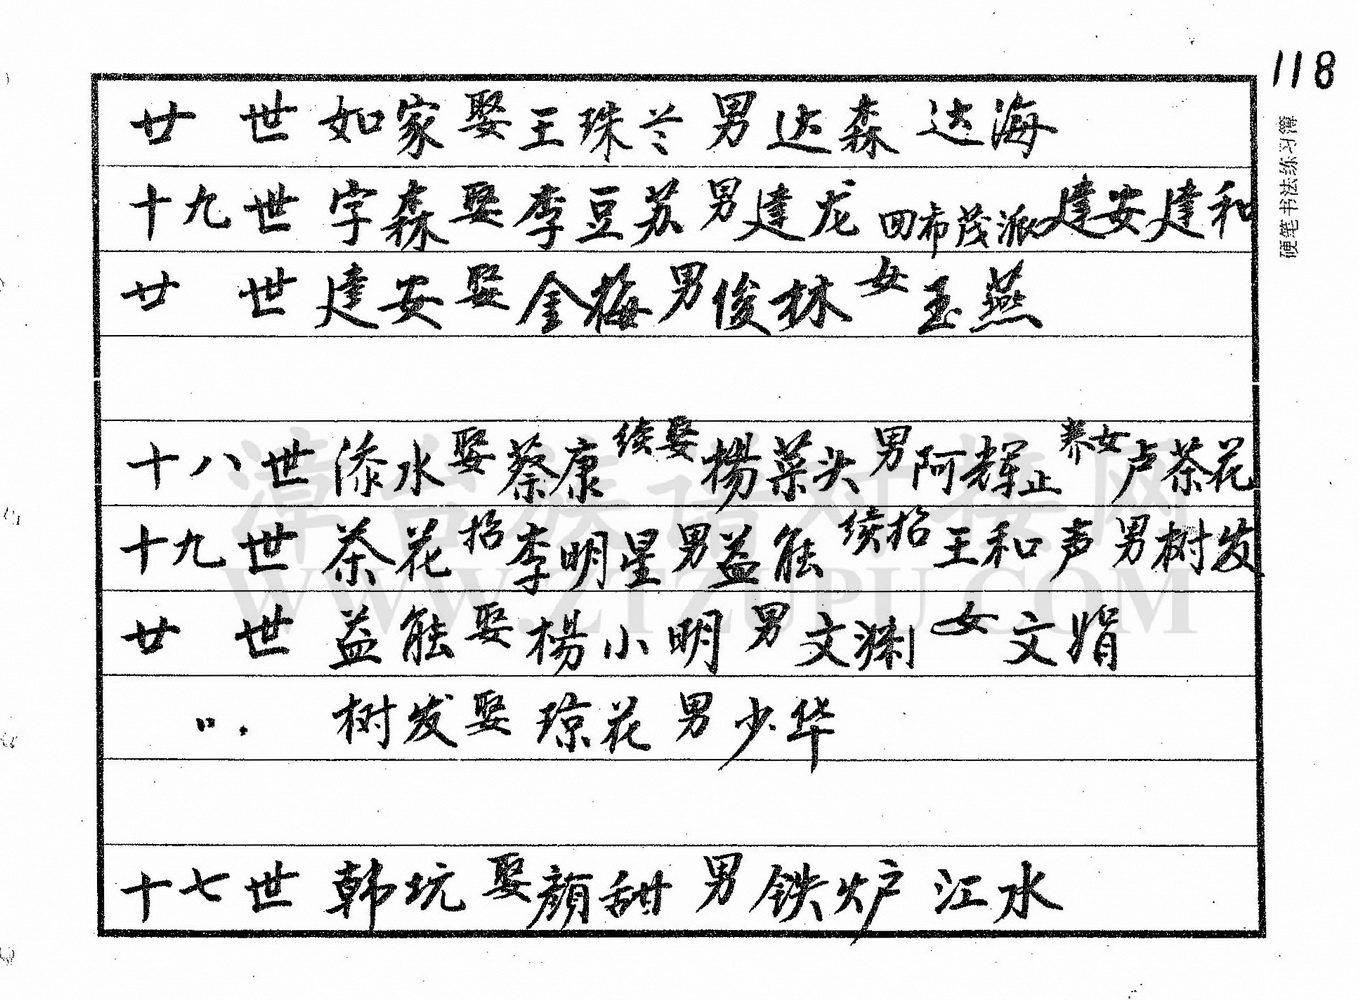 118
硬笔书法练习簿
廿世如家娶王珠兰男达森达海
十九世字森娶李豆苏男建龙回布茂派建安建和
廿世建安娶金梅男俊林女玉燕
十八世添水娶蔡康续娶楊菜头男阿辉止养女卢茶花
十九世茶花招李明星男益能续招王和声男树发
廿世益能娶楊小明男文渊女文娟
〃. 树发娶琼花男少华
十七世韩坑娶颜甜男铁炉江水
漳台族谱对接网
WWW.ZTZUPU.COM